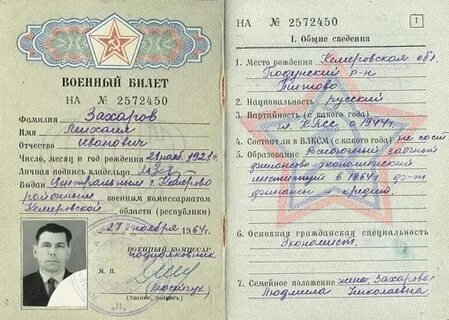 ВОЕННЫЙ БИЛЕТ
НА № 2572450
Фамилия Захаров
Имя Михаил
Отчество Иванович
Число, месяц и год рождения 21 1921 г.
Личная подпись владельца
Выдан Центральным г. Кемерово
районным военным комиссариатом
Кемеровской области (республики)
27 ноября 1964 г.
ВОЕННЫЙ КОМИССАР
подполковник
М. П.
(звание, подпись)
НА № 2572450 1
I. Общие сведения
1. Место рождения Кемеровская обл.
р-н
Титово
2. Национальность русский
3. Партийность (с какого года)
чл. КПСС с 1944 г.
4. Состоит ли в ВЛКСМ (с какого года) не сост
3. Образование Всесоюзный заочный
финансово экономический
институт в 1964 г.
финансы и кредит.
6. Основная гражданская специальность
Экономист.
7. Семейное положение жена Захарова
Людмила Николаевна